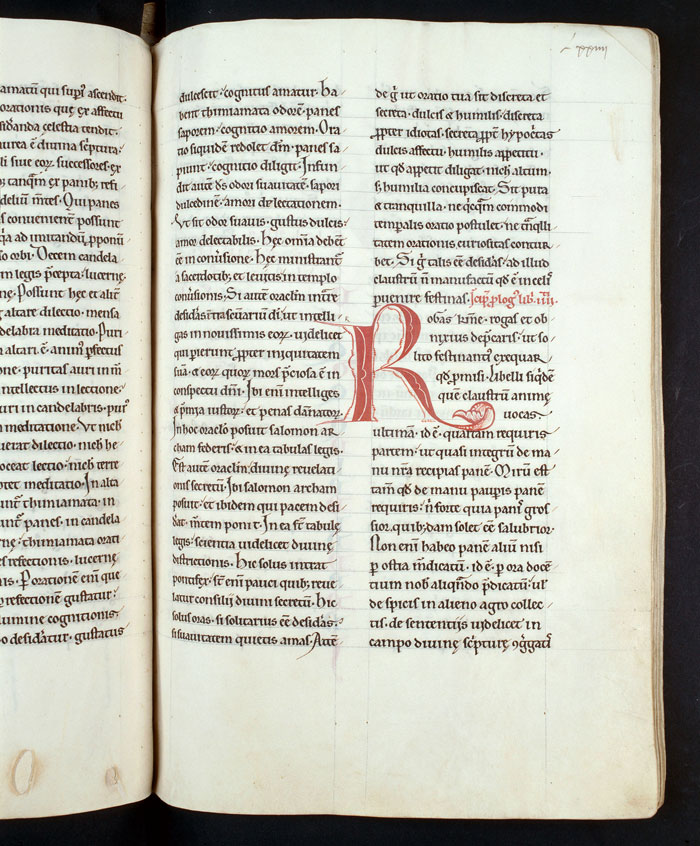 amatū qui supꝰ ascendit.
orationis quę ex affectu
siđanda celestia tendit.
aurea ē diuina scͥptura.
li siue eoꝝ successores. ex
tanq̄m ex panib; refi-
deliū m̄tes. Qui panes
s conuenienter possunt
q̄a ad imitandū pponū
so orbi. Decem candela
in legis p̄cepta. lucerne
nę. Possunt hęc et aliē
altare dilectio. mensa
delabra meditatio. Puri
altari. ē animꝰ pfectus
one. puritas auri in m̄
intellectus in lectione.
uri in candelabris. purꝰ
meditatione. Vt nich
uerat dilectio. nich he
oceat lectio. nich terre
ptet meditatio. In alta
unt thimiamata. in
unt panes. in candela
rne. thimiamata orati
s refectionis. lucerne
nis. P orationē eni que
refectionē gustatur.
lumine cognitionis.
o desidatur. gustatus
dulcescit. cognitus amatur. ha-
bent thimiamata odorē. panes
saporem. cognitio amorem. Ora
tio siquidem redolet. dm̄. panes sa
piunt. cognitio diligit. Infun
dit autē ds̄ odori suauitatē. sapori
dulcedinē. amori delectationem.
Vt sit odor suauis. gustus dulcis.
amor delectabilis. Hęc om̄ia debēt
ēē in conuīsione. Hęc ministrant
a sacerdotib; et leuitis in templo
conūsionis. Si autē oraclm̄ int̄re
desidas t̄ra secariū di. ut intelli
gas in nouissimis eoꝝ. uidelicet
qui perierunt ppter iniquitatem
suā. & eoꝝ quoꝝ mors pciosa ē in
conspectu dn̄i. Ibi eni intelliges
& pmia iustoꝝ. et penas danatoꝝ.
In hoc oraclō posuit salomon ar
cham federis. & in ea tabulas legis.
Est autē oraclm̄ diuinę reuelati
onis secretū. Ibi salomon archam
posuit. et ibidem qui pacem desi
dat. m̄tem ponit. In ea st̄ tabulę
legis. scientia uidelicet diuinę
districtionis. Hic solus intrat
pontifex. st̄ eni pauci quib; reue
latur consilii diuini secretū. Hic
solus oras. si solitarius ēē desidas.
si suauitatem quietis amas. Atten
de ḡ ut oratio tua sit discreta et
secreta. dulcis & humilis. discreta
ppter idiotas. secreta ppt̄ hypocritas
dulcis affectu. humilis appetitu.
ut qd̄ appetit diligat. nich altum.
s; humilia concupiscat. Sit pura
& tranquilla. ne q̄cq̄m commodi
tempalis oratio postulet. ne t̄nq̄lli
tatem orationis curiositas contur
bet. Si ḡ talis ēē desidas. ad illud
claustrū n̄ manufactū qd̄ ē in celiſ
puenire festinas. Icip plogꝰ lib. iiii.
Robas kme. rogas et ob
nixius depcaris. ut so-
lito festinantiꝰ exequar
qd̄ pmisi. libelli siqdē
que claustrū animę
uocas.
ultimā. id ē. quartam requiris
partem. ut quasi integrū de ma
nu m̄a recipias panē. Mirū est
tam̄ qd̄ de manu paupis panē
requiris. n̄ forte quia panꝰ gros
sior. quib;dam solet ēē salubrior.
Non eni habeo panē aliū nisi
p ostia m̄dicatū. id ē. p ora docē
tium nob̄ aliqn̄do p̄dicatū. ul̄
de spicis in alieno agro collec-
tis. de sententijs uidelicet in
campo diuinę scͥpturę ꝯgregati